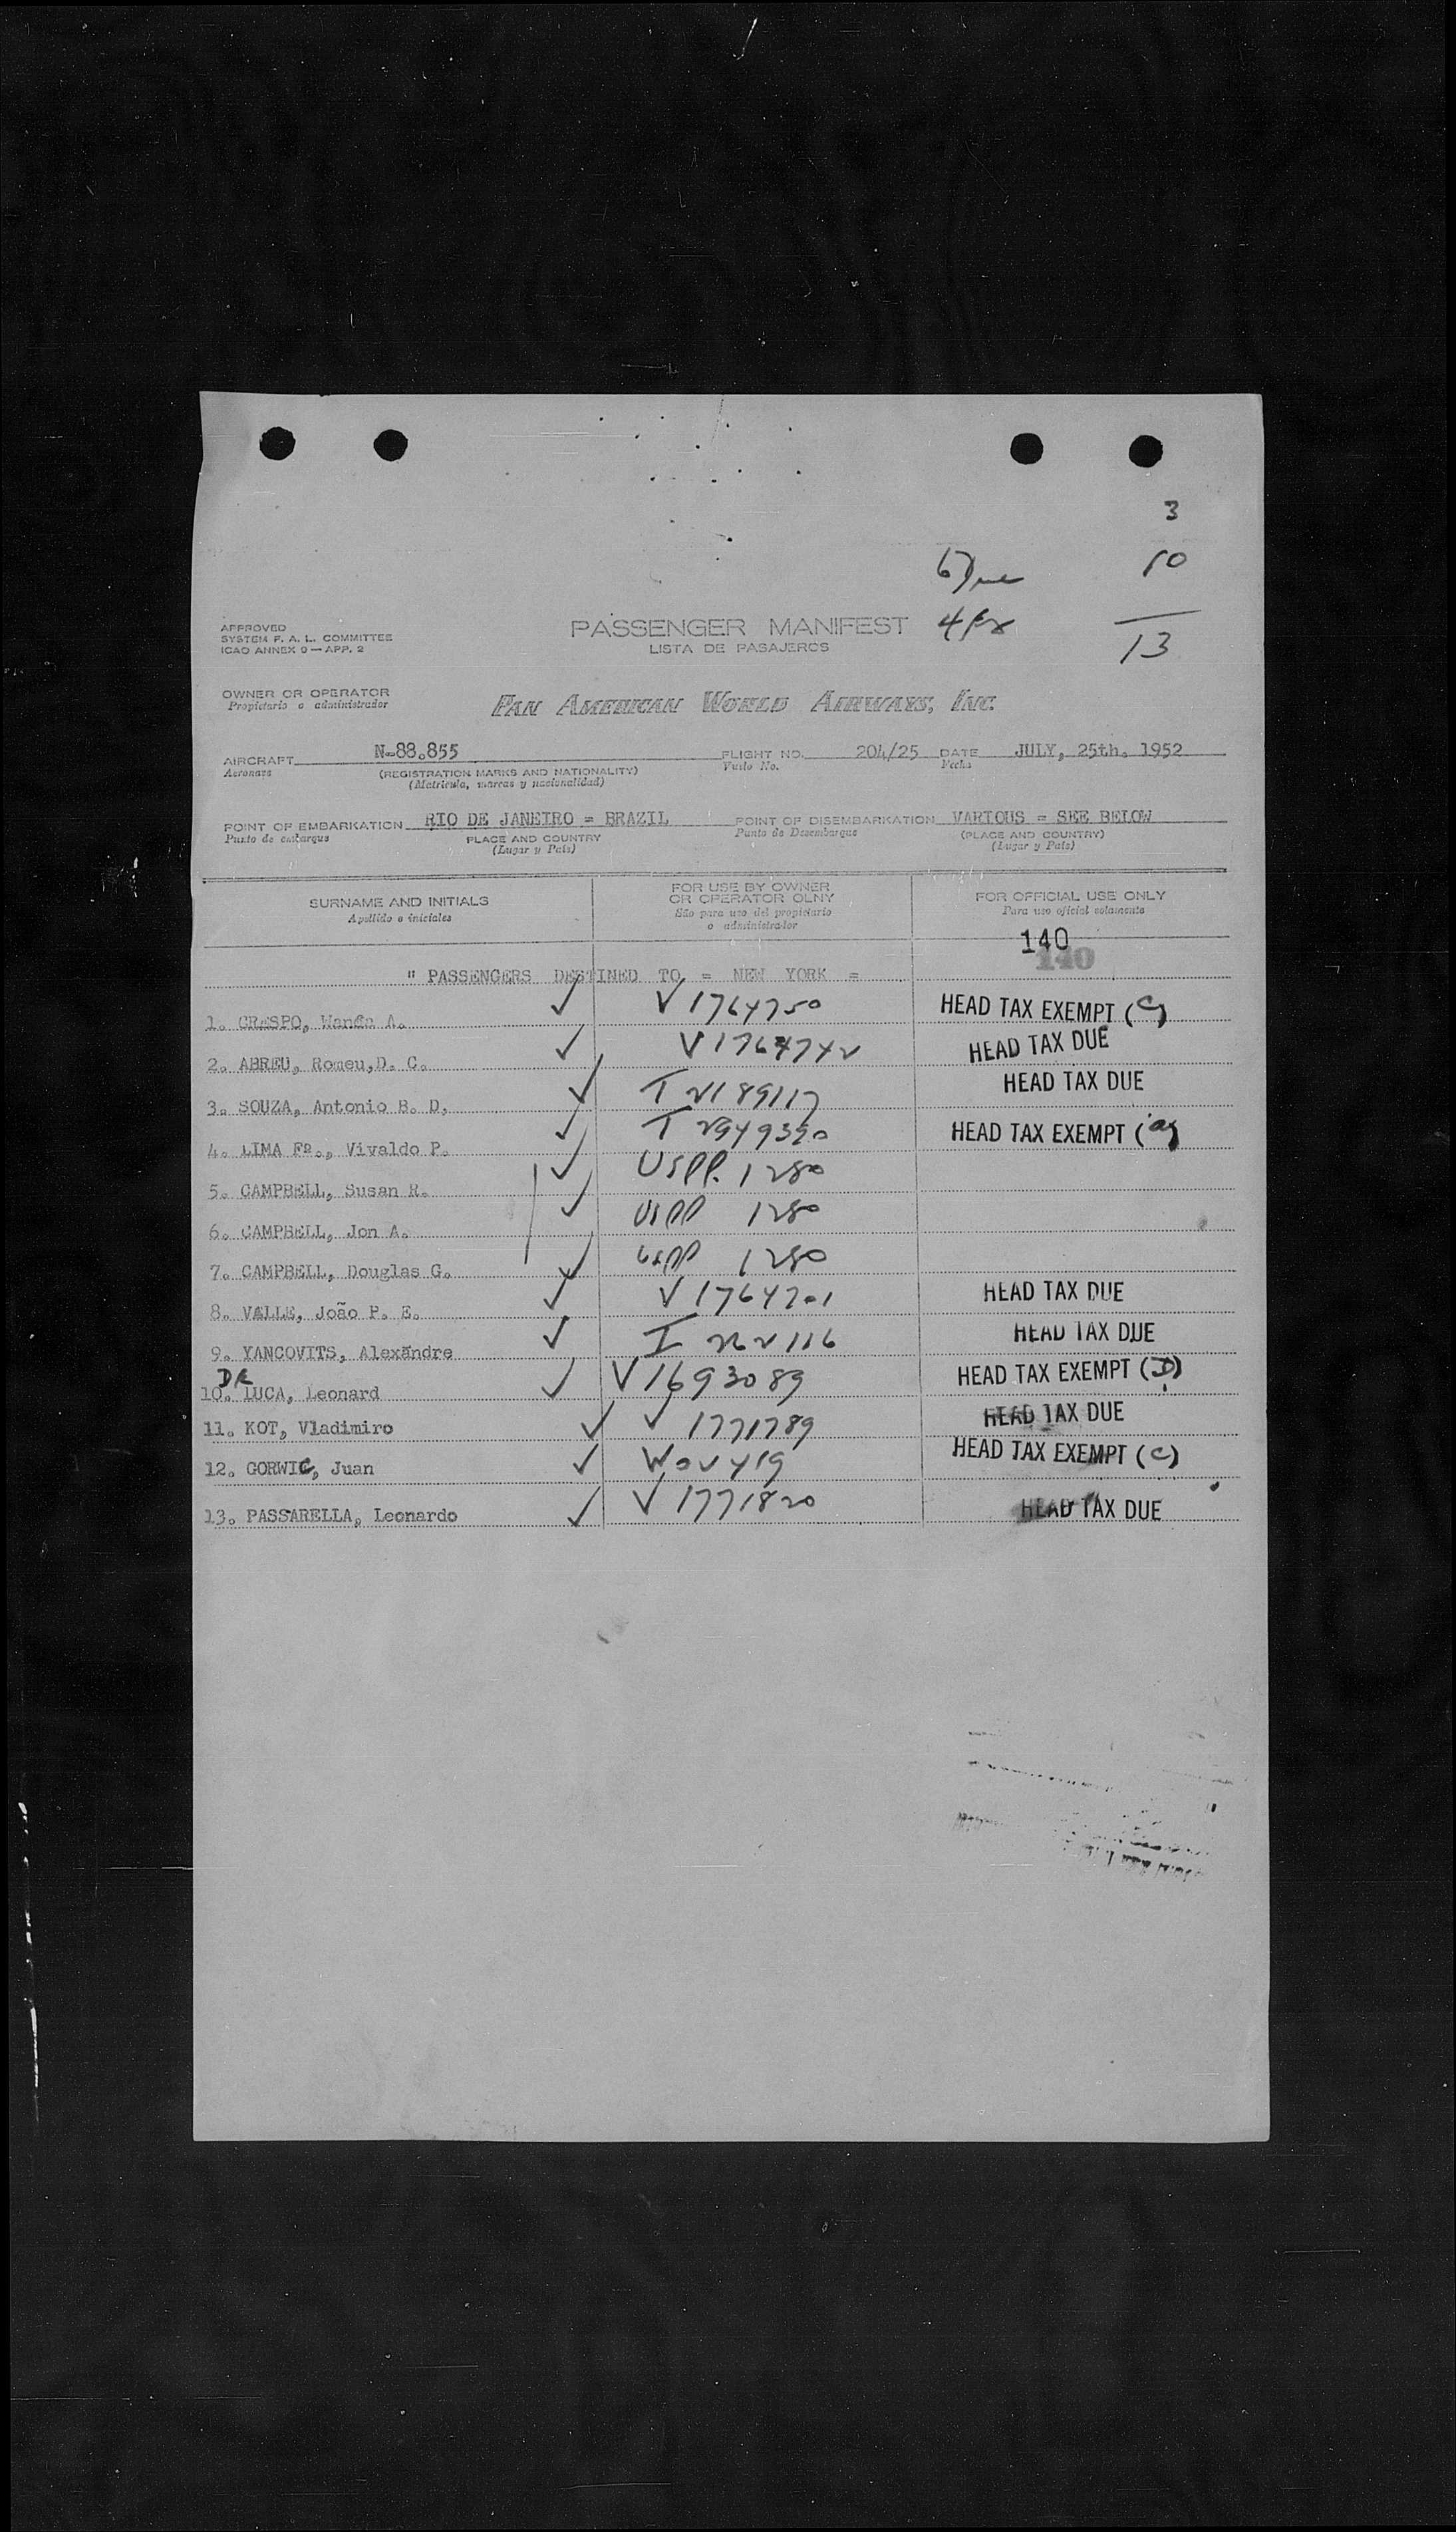 3
6 Due 10
4 Ex
13
APPROVED
SYSTEM F. A. L. COMMITTEE
ICAO ANNEX 9 — APP. 2
PASSENGER MANIFEST
LISTA DE PASAJEROS
OWNER OR OPERATOR
Propietario o administrador
PAN AMERICAN WORLD AIRWAYS, INC.
AIRCRAFT N-88.855 FLIGHT NO. 204/25 DATE JULY, 25th. 1952
Aeronave (REGISTRATION MARKS AND NATIONALITY) Vuelo No. Fecha
(Matricula, marcas y nacionalidad)
POINT OF EMBARKATION RIO DE JANEIRO = BRAZIL POINT OF DISEMBARKATION VARIOUS = SEE BELOW
Punto de embarque PLACE AND COUNTRY Punto de Desembarque (PLACE AND COUNTRY)
(Lugar y País) (Lugar y País)
SURNAME AND INITIALS FOR USE BY OWNER OR OPERATOR OLNY FOR OFFICIAL USE ONLY
Apellido e iniciales São para uso del propietario o administrador Para uso oficial solamente
140
140
" PASSENGERS DESTINED TO = NEW YORK =
1. CRESPO, A. ✓ V 1764750 HEAD TAX EXEMPT (C)
2. ABREU, Romeu, D. C. ✓ V 1764742 HEAD TAX DUE
3. SOUZA, Antonio B. D. ✓ T 2189117 HEAD TAX DUE
4. LIMA Fº., Vivaldo P. ✓ T 2949390 HEAD TAX EXEMPT
5. CAMPBELL, Susan R. ✓ USPP. 1280
6. CAMPBELL, Jon A. ✓ USPP 1280
7. CAMPBELL, Douglas G. ✓ USPP 1280
8. VALLE, João P. E. ✓ V 1764701 HEAD TAX DUE
9. YANCOVITS, Alexandre ✓ I 262116 HEAD TAX DUE
10. DE LUCA, Leonard ✓ V 1693089 HEAD TAX EXEMPT (D)
11. KOT, Vladimiro ✓ V 1771789 HEAD TAX DUE
12. GORWIC, Juan ✓ HEAD TAX EXEMPT (C)
13. PASSARELLA, Leonardo ✓ V 1771820 HEAD TAX DUE